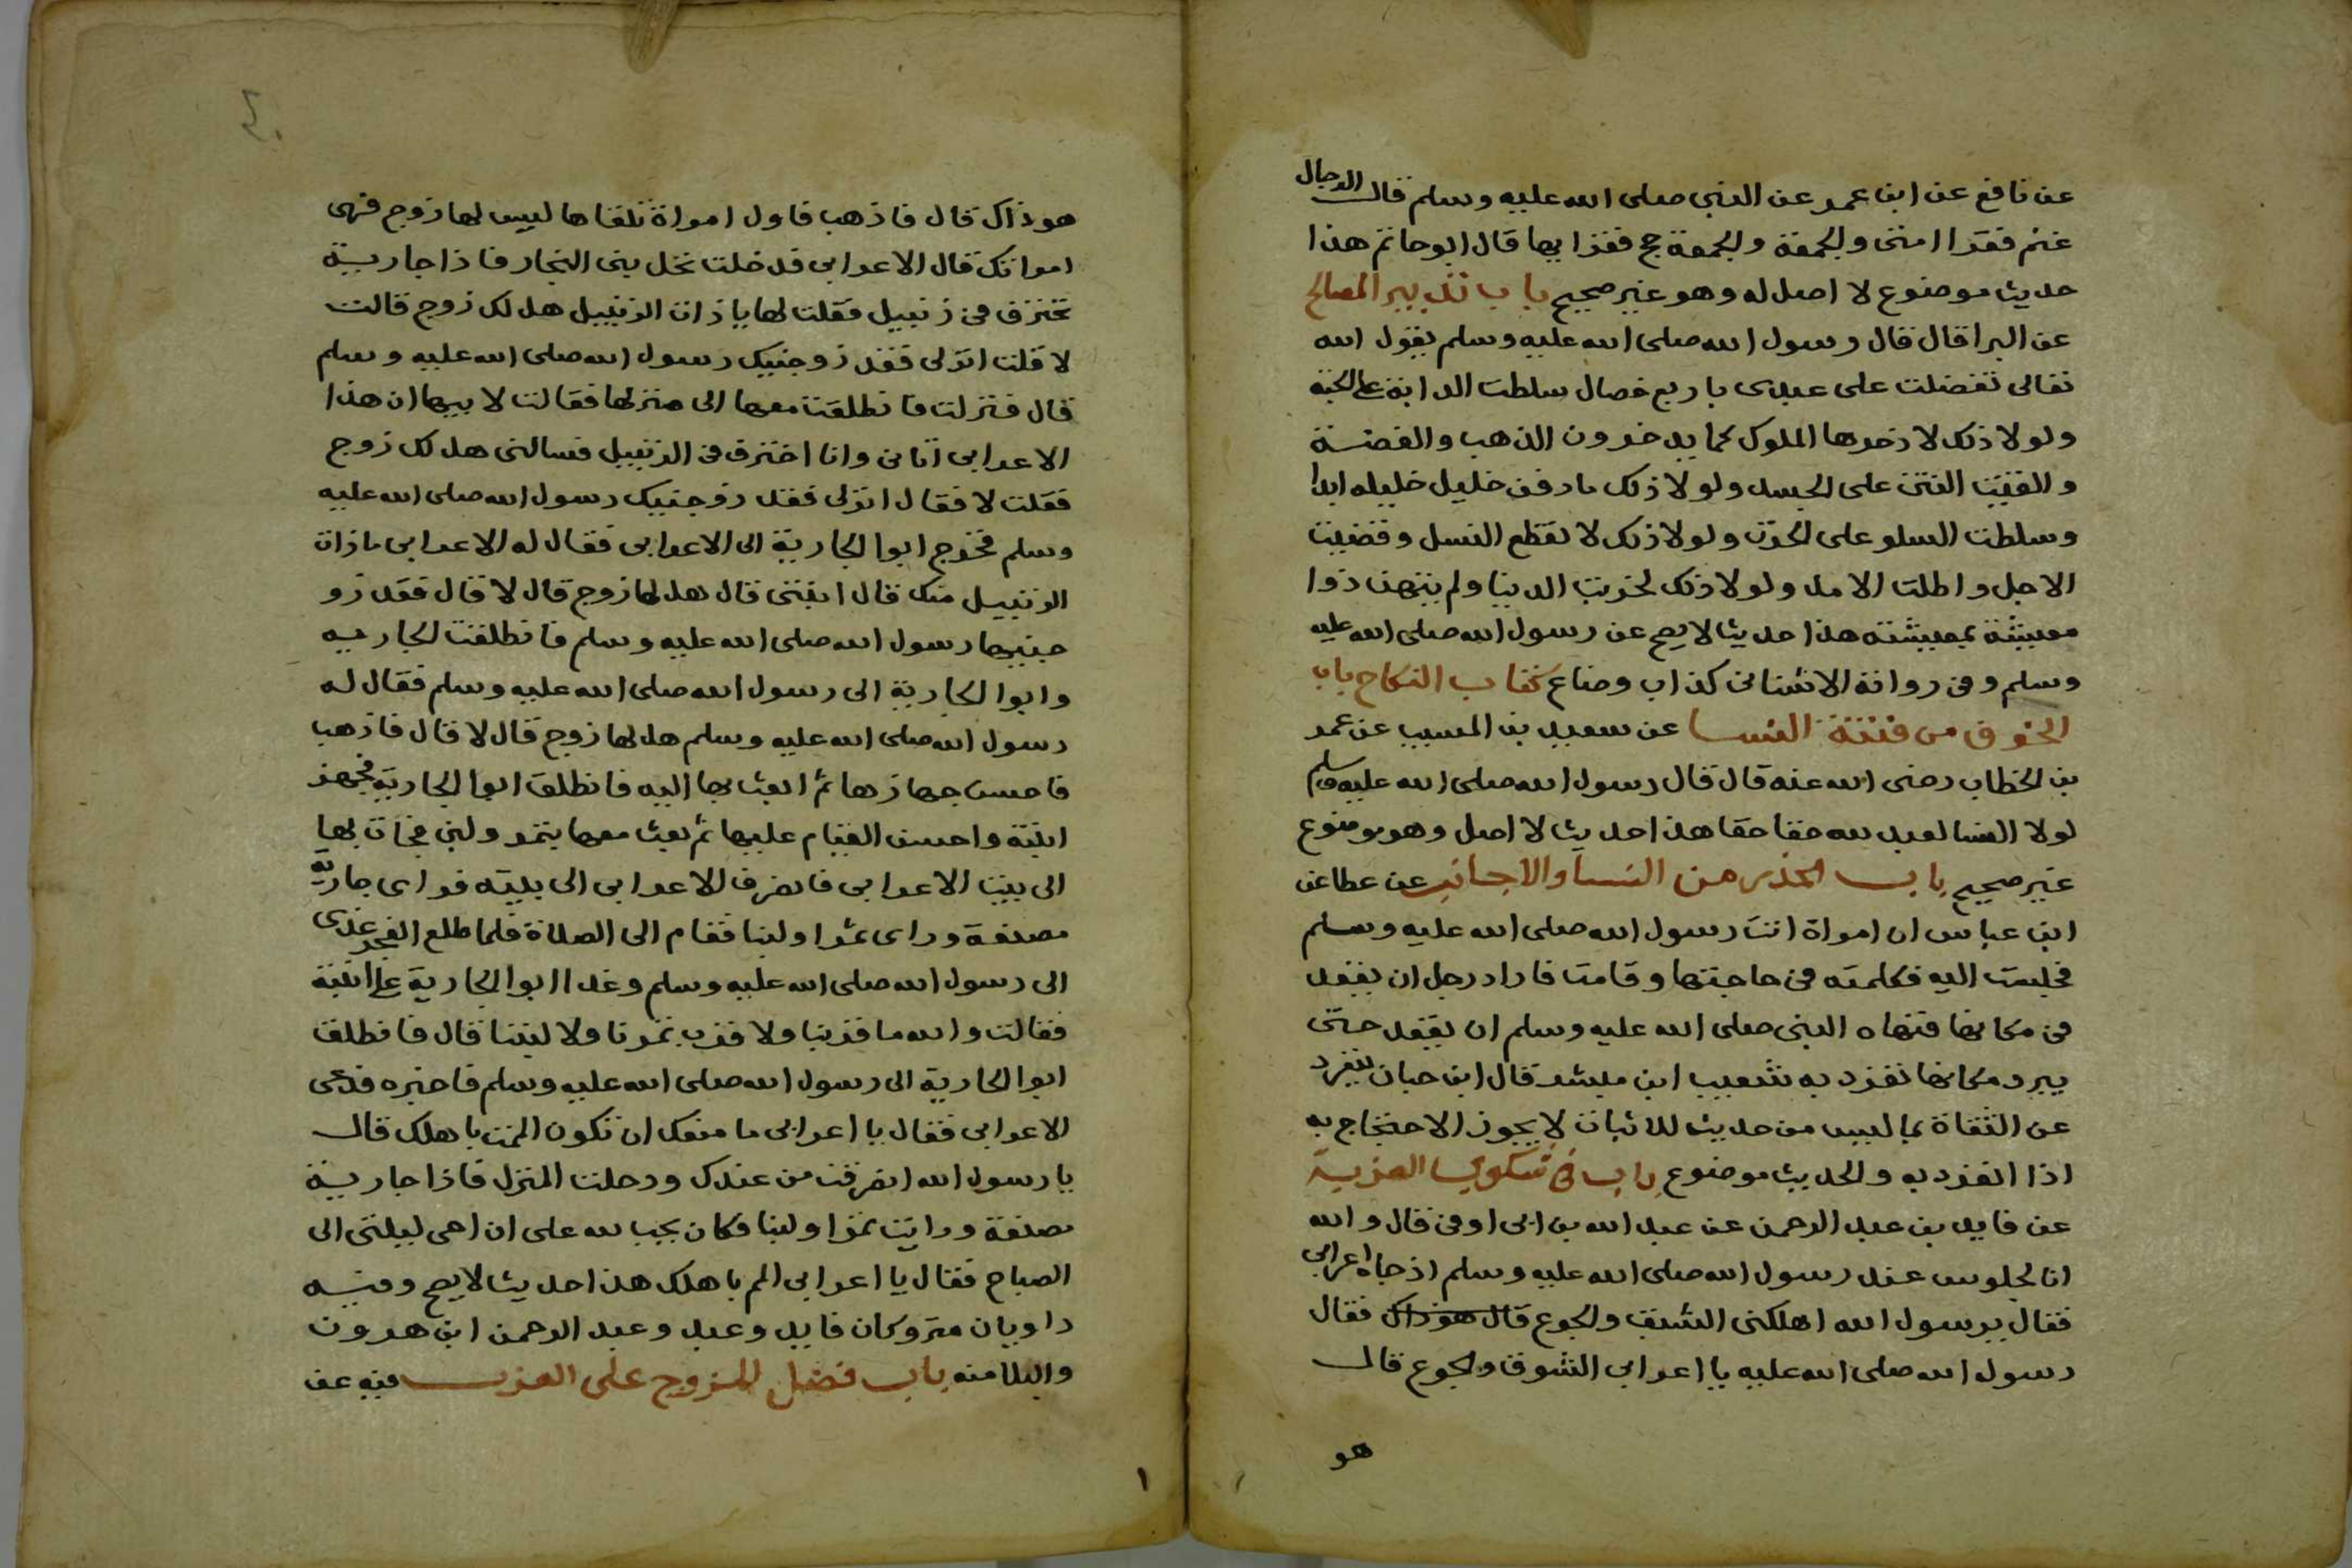 عن نافع عن ابن عمر عن النبى صلى الله عليه وسلم قال الدجال
غنم فقرا امتى والجمعة والجمعة حج فقرايها قال ابو حاتم هذا
حديث موضوع لا اصل له وهو غير صحيح باب تدبير المصالح
عن البرا قال قال رسول الله صلى الله عليه وسلم يقول الله
تعالى تفضلت على عبدى باربع خصال سلطت الدابة على الحبة
ولولا ذلك لادخرها الملوك كما يدخرون الذهب والفضة
والقيت النتن على الجسد ولولا ذلك ما دفن خليل خليله ابدا
وسلطت السلو على الحزن ولولا ذلك لانقطع النسل وقضيت
الاجل واطلت الامل ولولا ذلك لخربت الدنيا ولم يتهن ذوا
معيشة بمعيشته هذا حديث لا يصح عن رسول الله صلى الله عليه
وسلم وفى رواته الاشنانى كذاب وضاع كتاب النكاح باب
الخوف من فتنة النسا عن سعيد بن المسيب عن عمر
بن الخطاب رضى الله عنه قال قال رسول الله صلى الله عليه وسلم
لولا النسا لعبد لله حقا حقا هذا حديث لا اصل وهو موضوع
غير صحيح باب الحذر من النسا والاجانب عن عطا عن
ابن عباس ان امراة اتت رسول الله صلى الله عليه وسلم
فجلست اليه فكلمته فى حاجتها وقامت فاراد رجل ان يقعد
فى مكانها فنهاه النبى صلى الله عليه وسلم ان يقعد حتى
يبرد مكانها تفرد به شعيب ابن مبشر قال ابن حبان يتفرد
عن الثقاة بما ليس من حديث للاثبات لا يجوز الاحتجاج به
اذا انفرد به والحديث موضوع باب فى شكوى العزبة
عن فايد بن عبد الرحمن عن عبد الله بن ابى اوفى قال والله
انا لجلوس عند رسول الله صلى الله عليه وسلم اذ جاه اعرابى
فقال يرسول الله اهلكنى الشبق والجوع قال هو ذاك فقال
رسول الله صلى الله عليه يا اعرابى الشوق والجوع قال
هو
هو ذاك قال فاذهب فاول امراة تلقاها ليس لها زوج فهى
امراتك قال الاعرابى فدخلت نخل بنى النجار فاذا جارية
تخترف فى زنبيل فقلت لها يا ذات الزنبيل هل لك زوج قالت
لا قلت انزلى فقد زوجنيك رسول الله صلى الله عليه وسلم
قال فنزلت فانطلقت معها الى منزلها فقالت لابيها ان هذا
الاعرابى اتانى وانا اخترف فى الزنبيل فسالنى هل لك زوج
فقلت لا فقال انزلى فقد زوجنيك رسول الله صلى الله عليه
وسلم فخرج ابوا الجارية الى الاعرابى فقال له الاعرابى ما ذات
الزنبيل منك قال ابنتى قال هل لها زوج قال لا قال فقد زو
جنيها رسول الله صلى الله عليه وسلم فانطلقت الجاريه
وابوا الجارية الى رسول الله صلى الله عليه وسلم فقال له
رسول الله صلى الله عليه وسلم هل لها زوج قال لا قال فاذهب
فاحسن جهازها ثم ابعث بها اليه فانطلق ابوا الجارية فجهز
ابنته واحسن القيام عليها ثم بعث معها بتمر ولبن فجات بها
الى بيت الاعرابى فانصرف الاعرابى الى بيته فراى جارية
مصنعة وراى تمرا ولبنا فقام الى الصلاة فلما طلع الفجر غدى
الى رسول الله صلى الله عليه وسلم وغدا ابوا الجارية على ابنته
فقالت والله ما قربنا ولا قرب تمرنا ولا لبننا قال فانطلق
ابوا الجارية الى رسول الله صلى الله عليه وسلم فاخبره فدعى
الاعرابى فقال يا اعرابى ما منعك ان تكون الممت باهلك قال
يا رسول الله انصرفت من عندك ودخلت المنزل فاذا جارية
مصنعة ورايت تمرا ولبنا فكان يجب لله على ان احى ليلتى الى
الصباح فقال يا اعرابى الم باهلك هذا حديث لا يصح وفيه
راويان متروكان فايد وعبد وعبد الرحمن ابن هرون
والبلا منه باب فضل المتزوج على العزب فيه عن